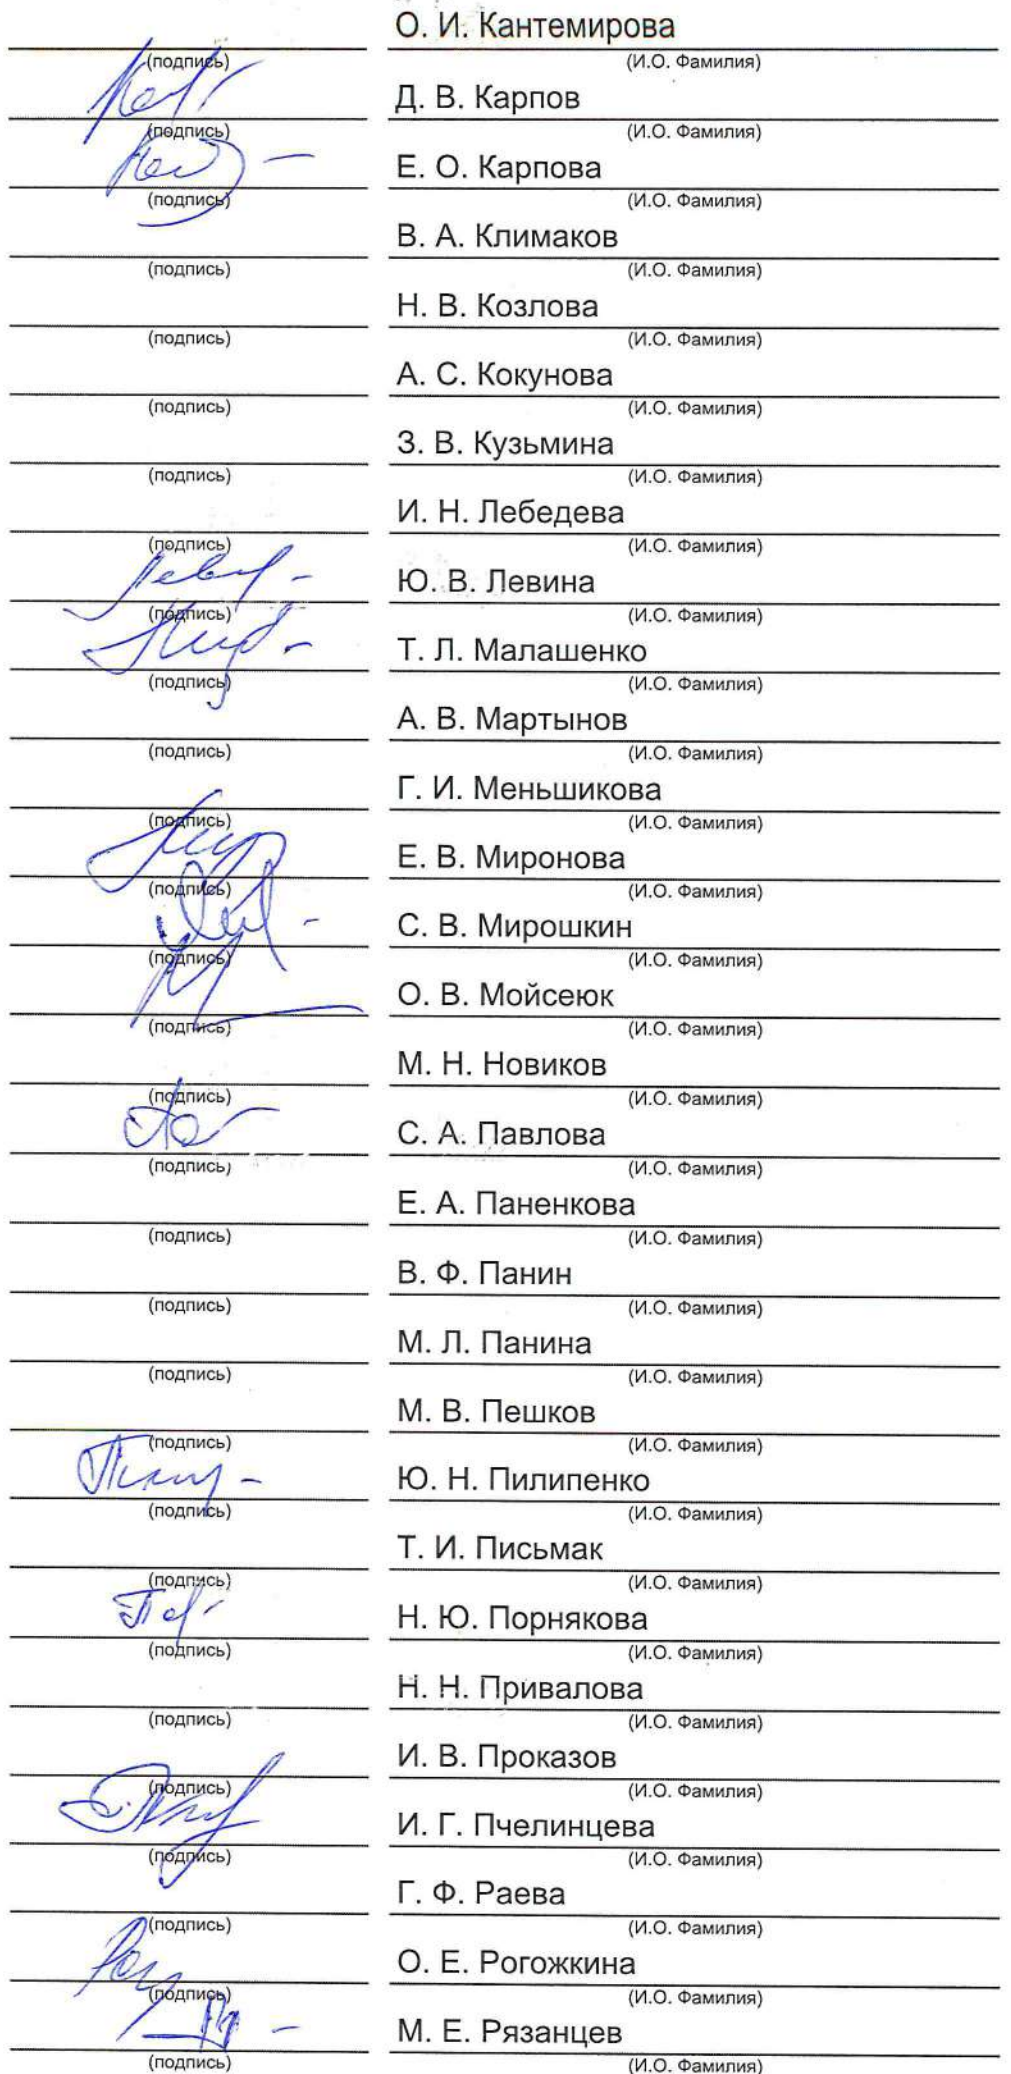 О. И. Кантемирова
(подпись) (И.О. Фамилия)
Д. В. Карпов
(подпись) (И.О. Фамилия)
Е. О. Карпова
(подпись) (И.О. Фамилия)
В. А. Климаков
(подпись) (И.О. Фамилия)
Н. В. Козлова
(подпись) (И.О. Фамилия)
А. С. Кокунова
(подпись) (И.О. Фамилия)
З. В. Кузьмина
(подпись) (И.О. Фамилия)
И. Н. Лебедева
(подпись) (И.О. Фамилия)
Ю. В. Левина
(подпись) (И.О. Фамилия)
Т. Л. Малашенко
(подпись) (И.О. Фамилия)
А. В. Мартынов
(подпись) (И.О. Фамилия)
Г. И. Меньшикова
(подпись) (И.О. Фамилия)
Е. В. Миронова
(подпись) (И.О. Фамилия)
С. В. Мирошкин
(подпись) (И.О. Фамилия)
О. В. Мойсеюк
(подпись) (И.О. Фамилия)
М. Н. Новиков
(подпись) (И.О. Фамилия)
С. А. Павлова
(подпись) (И.О. Фамилия)
Е. А. Паненкова
(подпись) (И.О. Фамилия)
В. Ф. Панин
(подпись) (И.О. Фамилия)
М. Л. Панина
(подпись) (И.О. Фамилия)
М. В. Пешков
(подпись) (И.О. Фамилия)
Ю. Н. Пилипенко
(подпись) (И.О. Фамилия)
Т. И. Письмак
(подпись) (И.О. Фамилия)
Н. Ю. Порнякова
(подпись) (И.О. Фамилия)
Н. Н. Привалова
(подпись) (И.О. Фамилия)
И. В. Проказов
(подпись) (И.О. Фамилия)
И. Г. Пчелинцева
(подпись) (И.О. Фамилия)
Г. Ф. Раева
(подпись) (И.О. Фамилия)
О. Е. Рогожкина
(подпись) (И.О. Фамилия)
М. Е. Рязанцев
(подпись) (И.О. Фамилия)